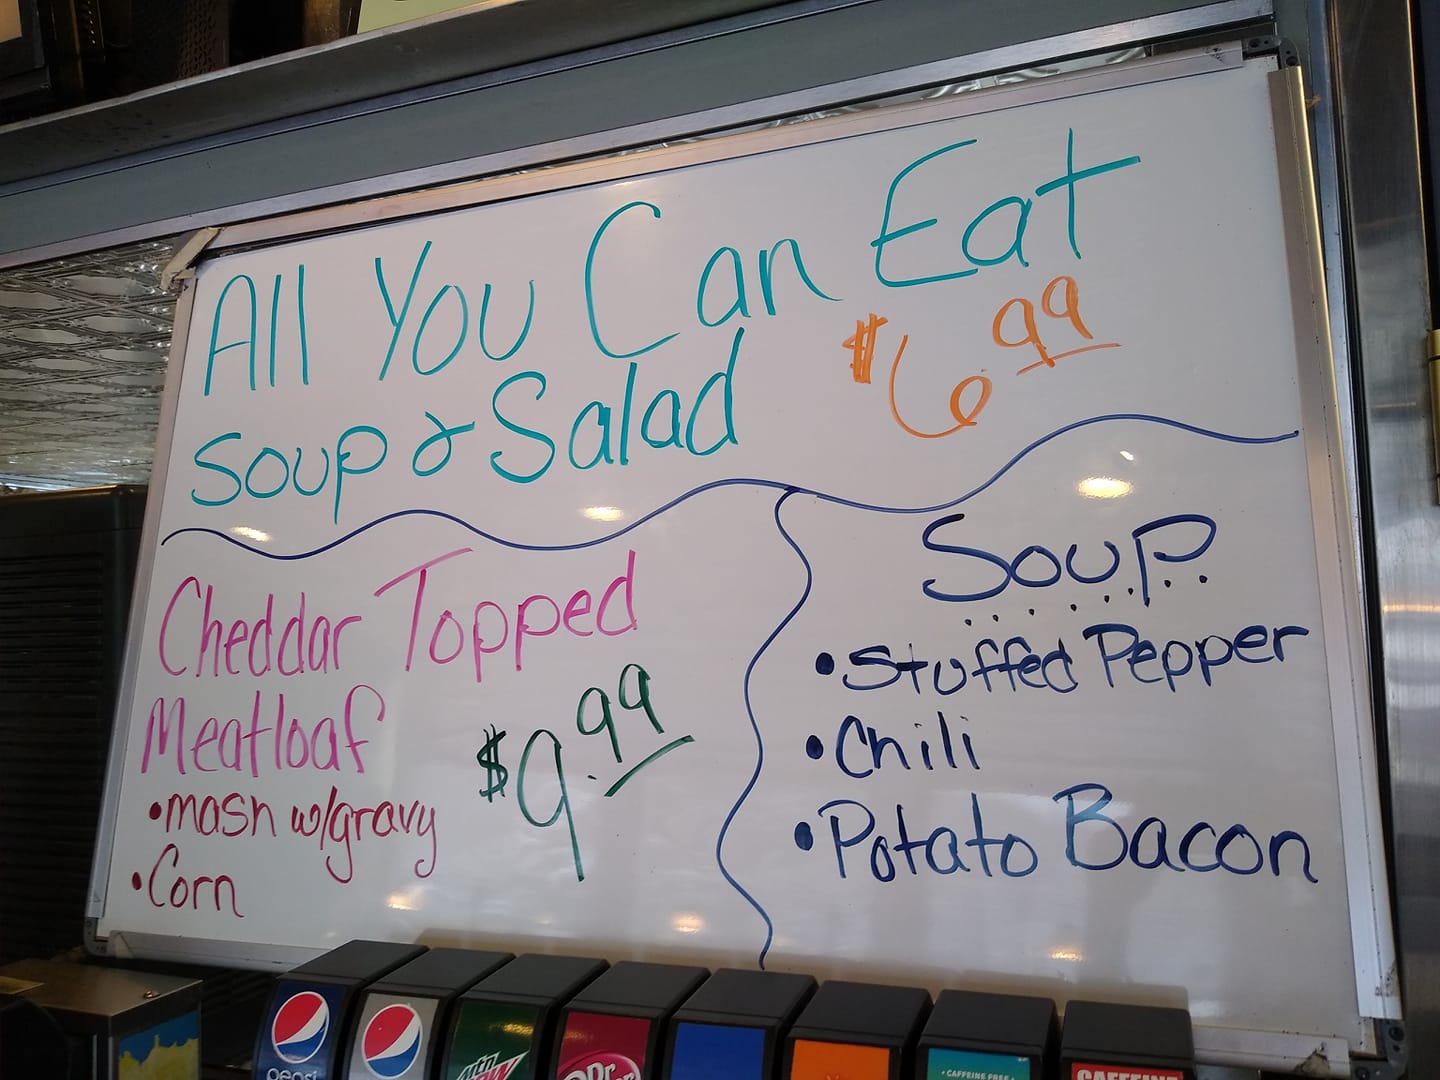 All You Can Eat
Soup & Salad
$6.99
Cheddar Topped
Meatloaf
$9.99
•mash w/gravy
•Corn
Soup
•Stuffed Pepper
•Chili
•Potato Bacon
pepsi
mtn
Dr
• CAFFEINE FREE •
CAFFEINE